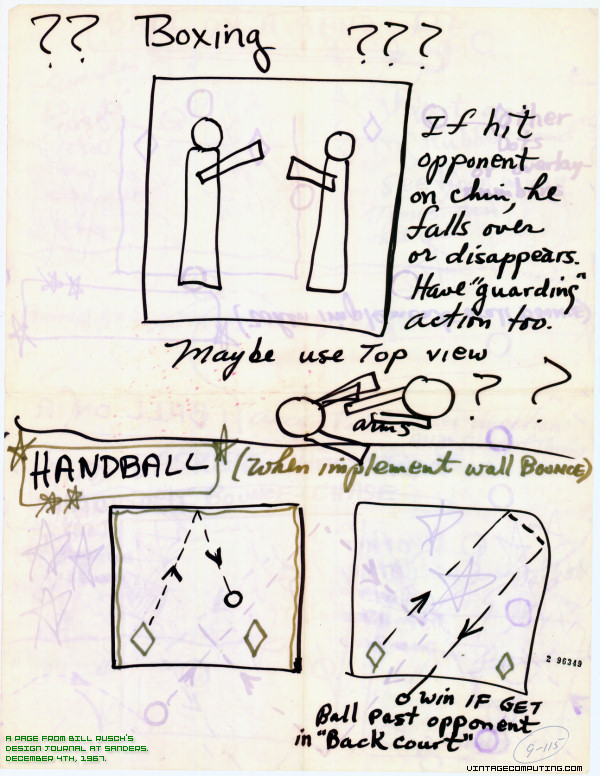 ?? Boxing ???
If hit
opponent
on chin, he
falls over
or disappears.
Have "guarding"
action too.
Maybe use Top view
? ?
arms
HANDBALL (When implement wall BOUNCE)
2 96349
O WIN IF GET
Ball past opponent
in "Back court"
9-115
A PAGE FROM BILL RUSCH'S
DESIGN JOURNAL AT SANDERS.
DECEMBER 4TH, 1967.
VINTAGECOMPUTING.COM